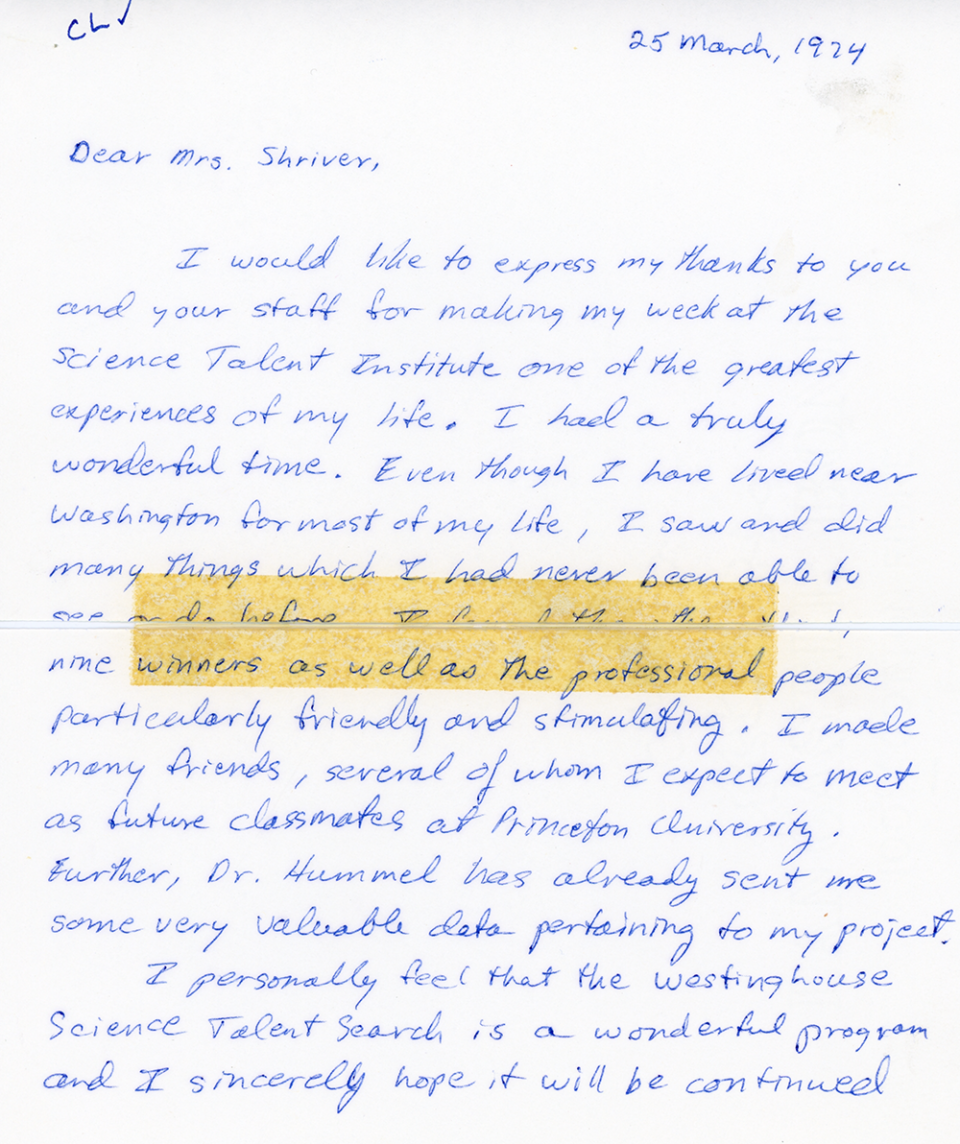 CL✓
25 March, 1974
Dear Mrs. Shriver,
I would like to express my thanks to you
and your staff for making my week at the
Science Talent Institute one of the greatest
experiences of my life. I had a truly
wonderful time. Even though I have lived near
Washington for most of my life, I saw and did
many things which I had never been able to
see or do before. I found the other thirty
nine winners as well as the professional people
particularly friendly and stimulating. I made
many friends, several of whom I expect to meet
as future classmates at Princeton University.
Further, Dr. Hummel has already sent me
some very valuable data pertaining to my project.
I personally feel that the Westinghouse
Science Talent Search is a wonderful program
and I sincerely hope it will be continued